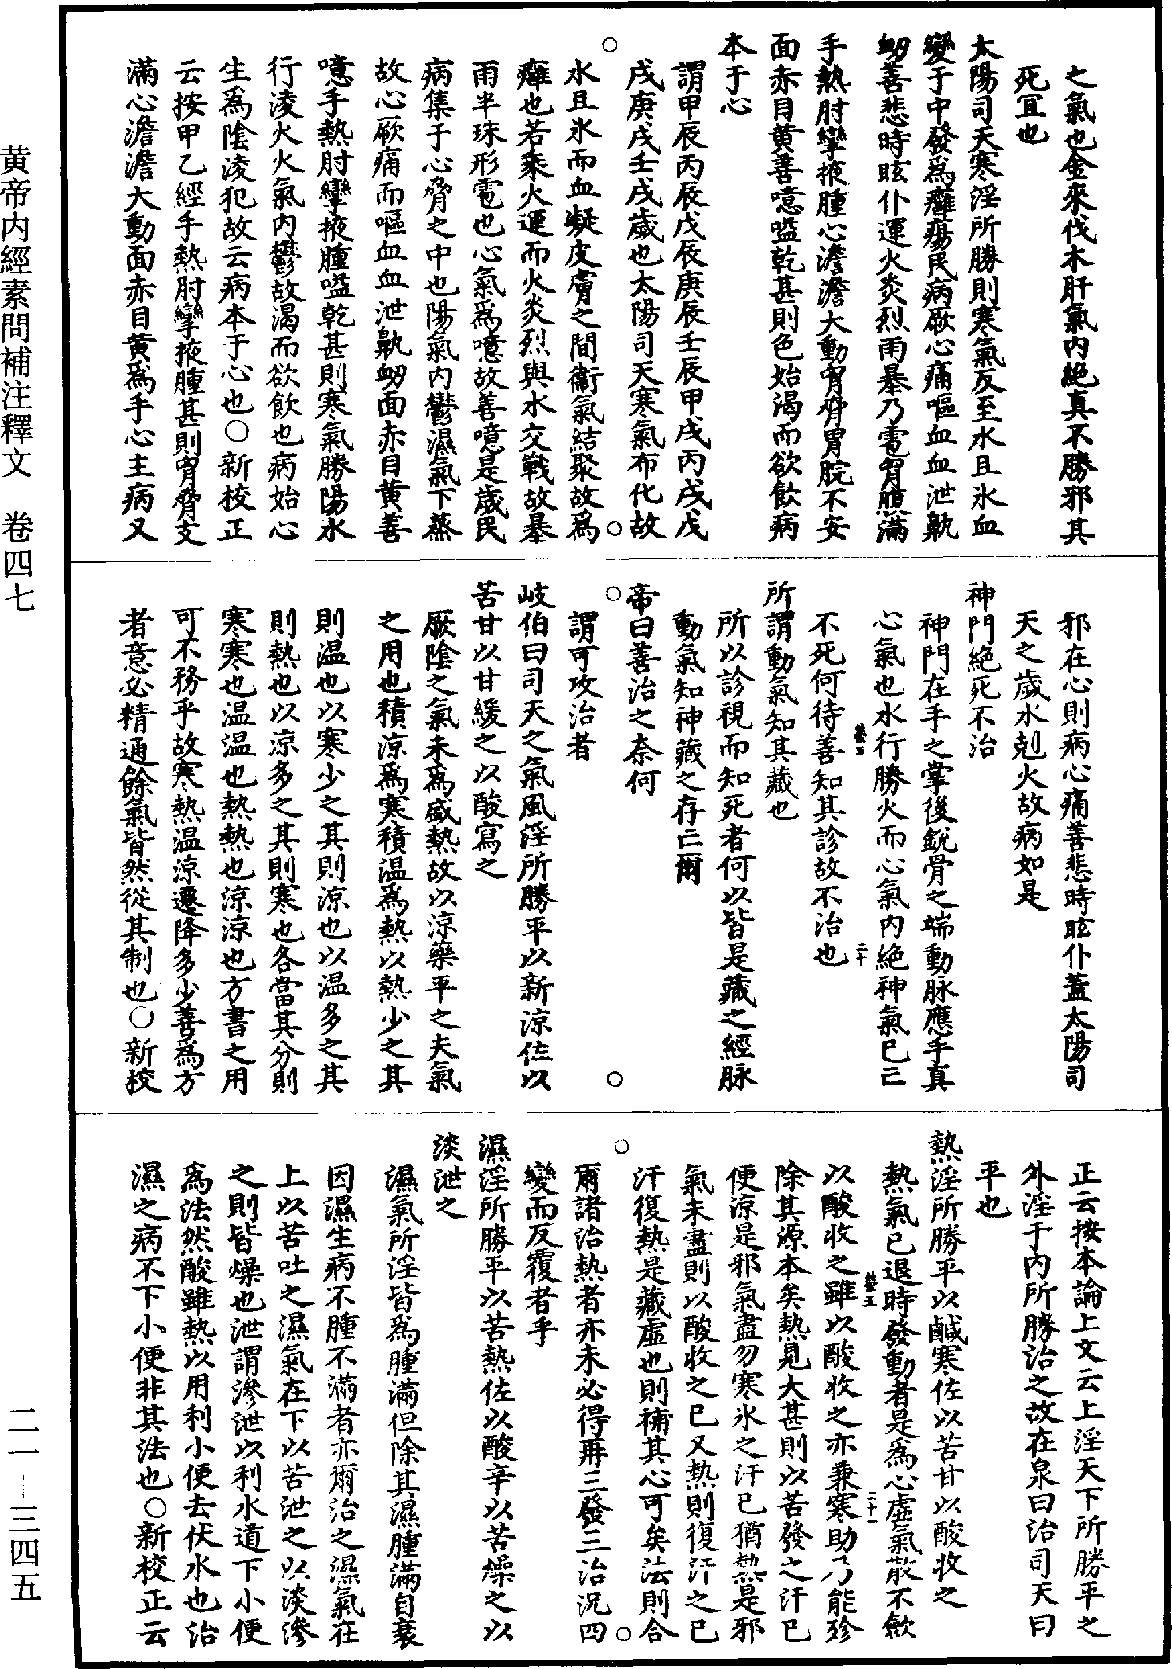 之氣也金來伐木肝氣内絶真不勝邪其
死宜也
太陽司天寒淫所勝則寒氣反至水且氷血
變于中發爲癰瘍民病厥心痛嘔血血泄鼽
衂善悲時眩仆運火炎烈雨暴乃雹胷腹滿
手熱肘攣掖腫心澹澹大動胷脇胃脘不安
面赤目黄善噫嗌乾甚則色始渴而欲飲病
本于心
謂甲辰丙辰戊辰庚辰壬辰甲戌丙戌戊
戌庚戌壬戌歲也太陽司天寒氣布化故
水且氷而血凝皮膚之間衞氣結聚故爲
癰也若乘火運而火炎烈與水交戰故暴
雨半珠形雹也心氣爲噫故善噫是歲民
病集于心脅之中也陽氣内鬱濕氣下蒸
故心厥痛而嘔血血泄鼽衂面赤目黄善
噫手熱肘攣掖腫嗌乾甚則寒氣勝陽水
行淩火火氣内鬱故渴而欲飲也病始心
生爲陰淩犯故云病本于心也○新校正
云按甲乙經手熱肘攣掖腫甚則胷脅支
滿心澹澹大動面赤目黄爲手心主病又
邪在心則病心痛善悲時眩仆蓋太陽司
天之歲水剋火故病如是
神門絶死不治
神門在手之掌後鋭骨之端動脉應手真
心氣也水行勝火而心氣内絶神氣已亡
不死何待善知其診故不治也
所謂動氣知其藏也
所以診視而知死者何以皆是藏之經脉
動氣知神藏之存亡爾
帝曰善治之奈何
謂可攻治者
岐伯曰司天之氣風淫所勝平以新涼佐以
苦甘以甘緩之以酸寫之
厥陰之氣未爲盛熱故以涼藥平之夫氣
之用也積涼爲寒積温爲熱以熱少之其
則温也以寒少之其則涼也以温多之其
則熱也以涼多之其則寒也各當其分則
寒寒也温温也熱熱也涼涼也方書之用
可不務乎故寒熱温涼遷降多少善爲方
者意必精通餘氣皆然從其制也○新校
正云按本論上文云上淫天下所勝平之
外淫于内所勝治之故在泉曰治司天曰
平也
熱淫所勝平以鹹寒佐以苦甘以酸收之
熱氣已退時發動者是爲心虚氣散不斂
以酸收之雖以酸收之亦兼寒助乃能殄
除其源本矣熱見大甚則以苦發之汗已
便涼是邪氣盡勿寒氷之汗已猶熱是邪
氣未盡則以酸收之已又熱則復汗之已
汗復熱是藏虚也則補其心可矣法則合
爾諸治熱者亦未必得再三發三治況四
變而反覆者乎
濕淫所勝平以苦熱佐以酸辛以苦燥之以
淡泄之
濕氣所淫皆爲腫滿但除其濕腫滿自衰
因濕生病不腫不滿者亦爾治之濕氣在
上以苦吐之濕氣在下以苦泄之以淡滲
之則皆燥也泄謂滲泄以利水道下小便
爲法然酸雖熱以用利小便去伏水也治
濕之病不下小便非其法也○新校正云
黄帝内經素問補注釋文　卷四七
二一—三四五